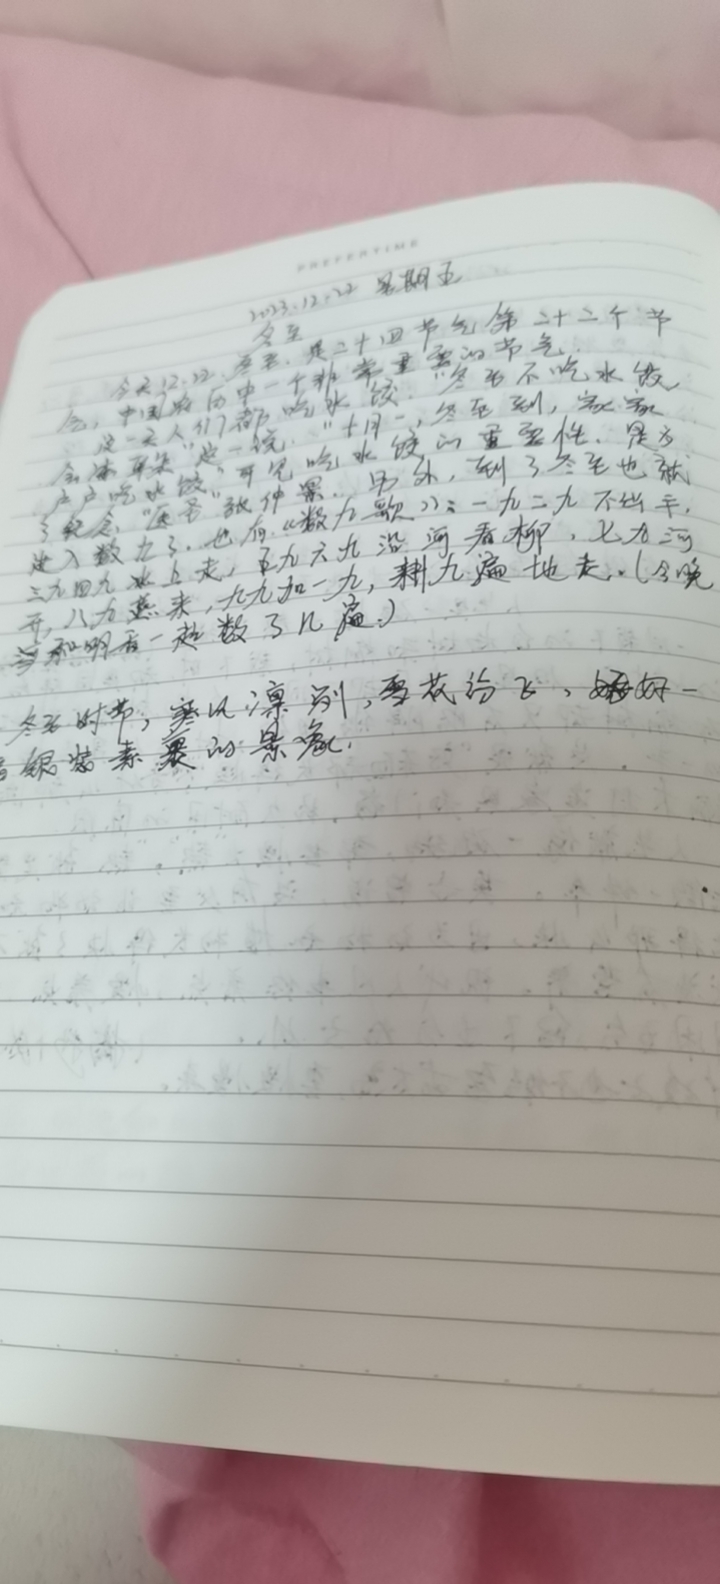 PREFERTIME
2023.12.22 星期五
冬至
今天12.22,冬至.是二十四节气第二十二个节
气,中国农历中一个非常重要的节气.
这一天人们都吃水饺."冬至不吃水饺
会冻耳朵"这一说."十月一,冬至到,家家
户户吃水饺"可见吃水饺的重要性.是为
了纪念"医圣"张仲景.另外,到了冬至也就
进入数九了.也有《数九歌》:一九二九不出手,
三九四九冰上走,五九六九沿河看柳,七九河
开,八九燕来,九九加一九,耕九遍地走.(今晚
和明 一起数了几遍.)
冬至时节,寒风凛冽,雪花纷飞,好一
银装素裹的景象.